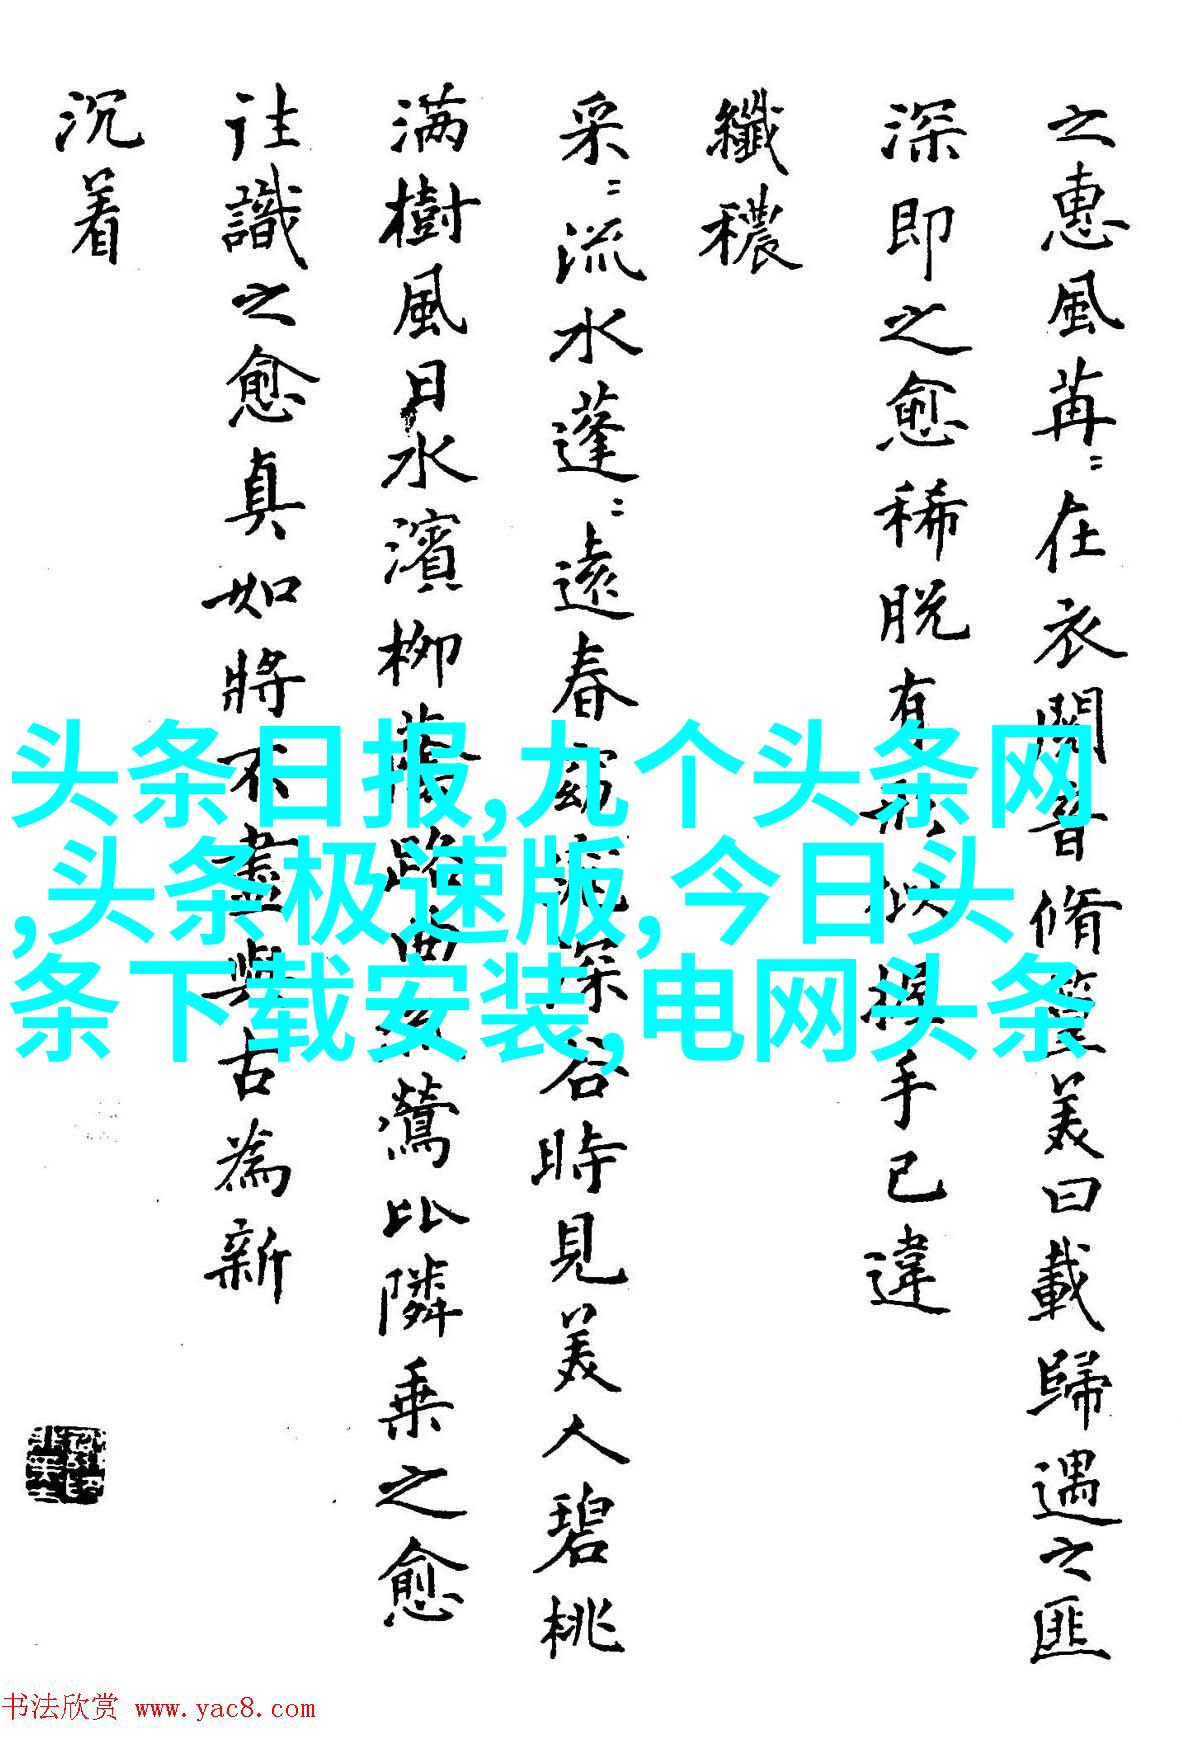 之惠風苒〻在衣閱音脩篁美曰載歸遇之匪
深即之愈稀脱有形似握手已違
纖穠
采〻流水蓬〻遠春窈窕深谷時見美人碧桃
满樹風日水濱柳蔭路曲流鶯比隣乗之愈
往識之愈真如將不盡與古為新
沉着
头条日报,九个头条网
,头条极速版,今日头
条下载安装,电网头条
书法欣赏 www.yac8.com